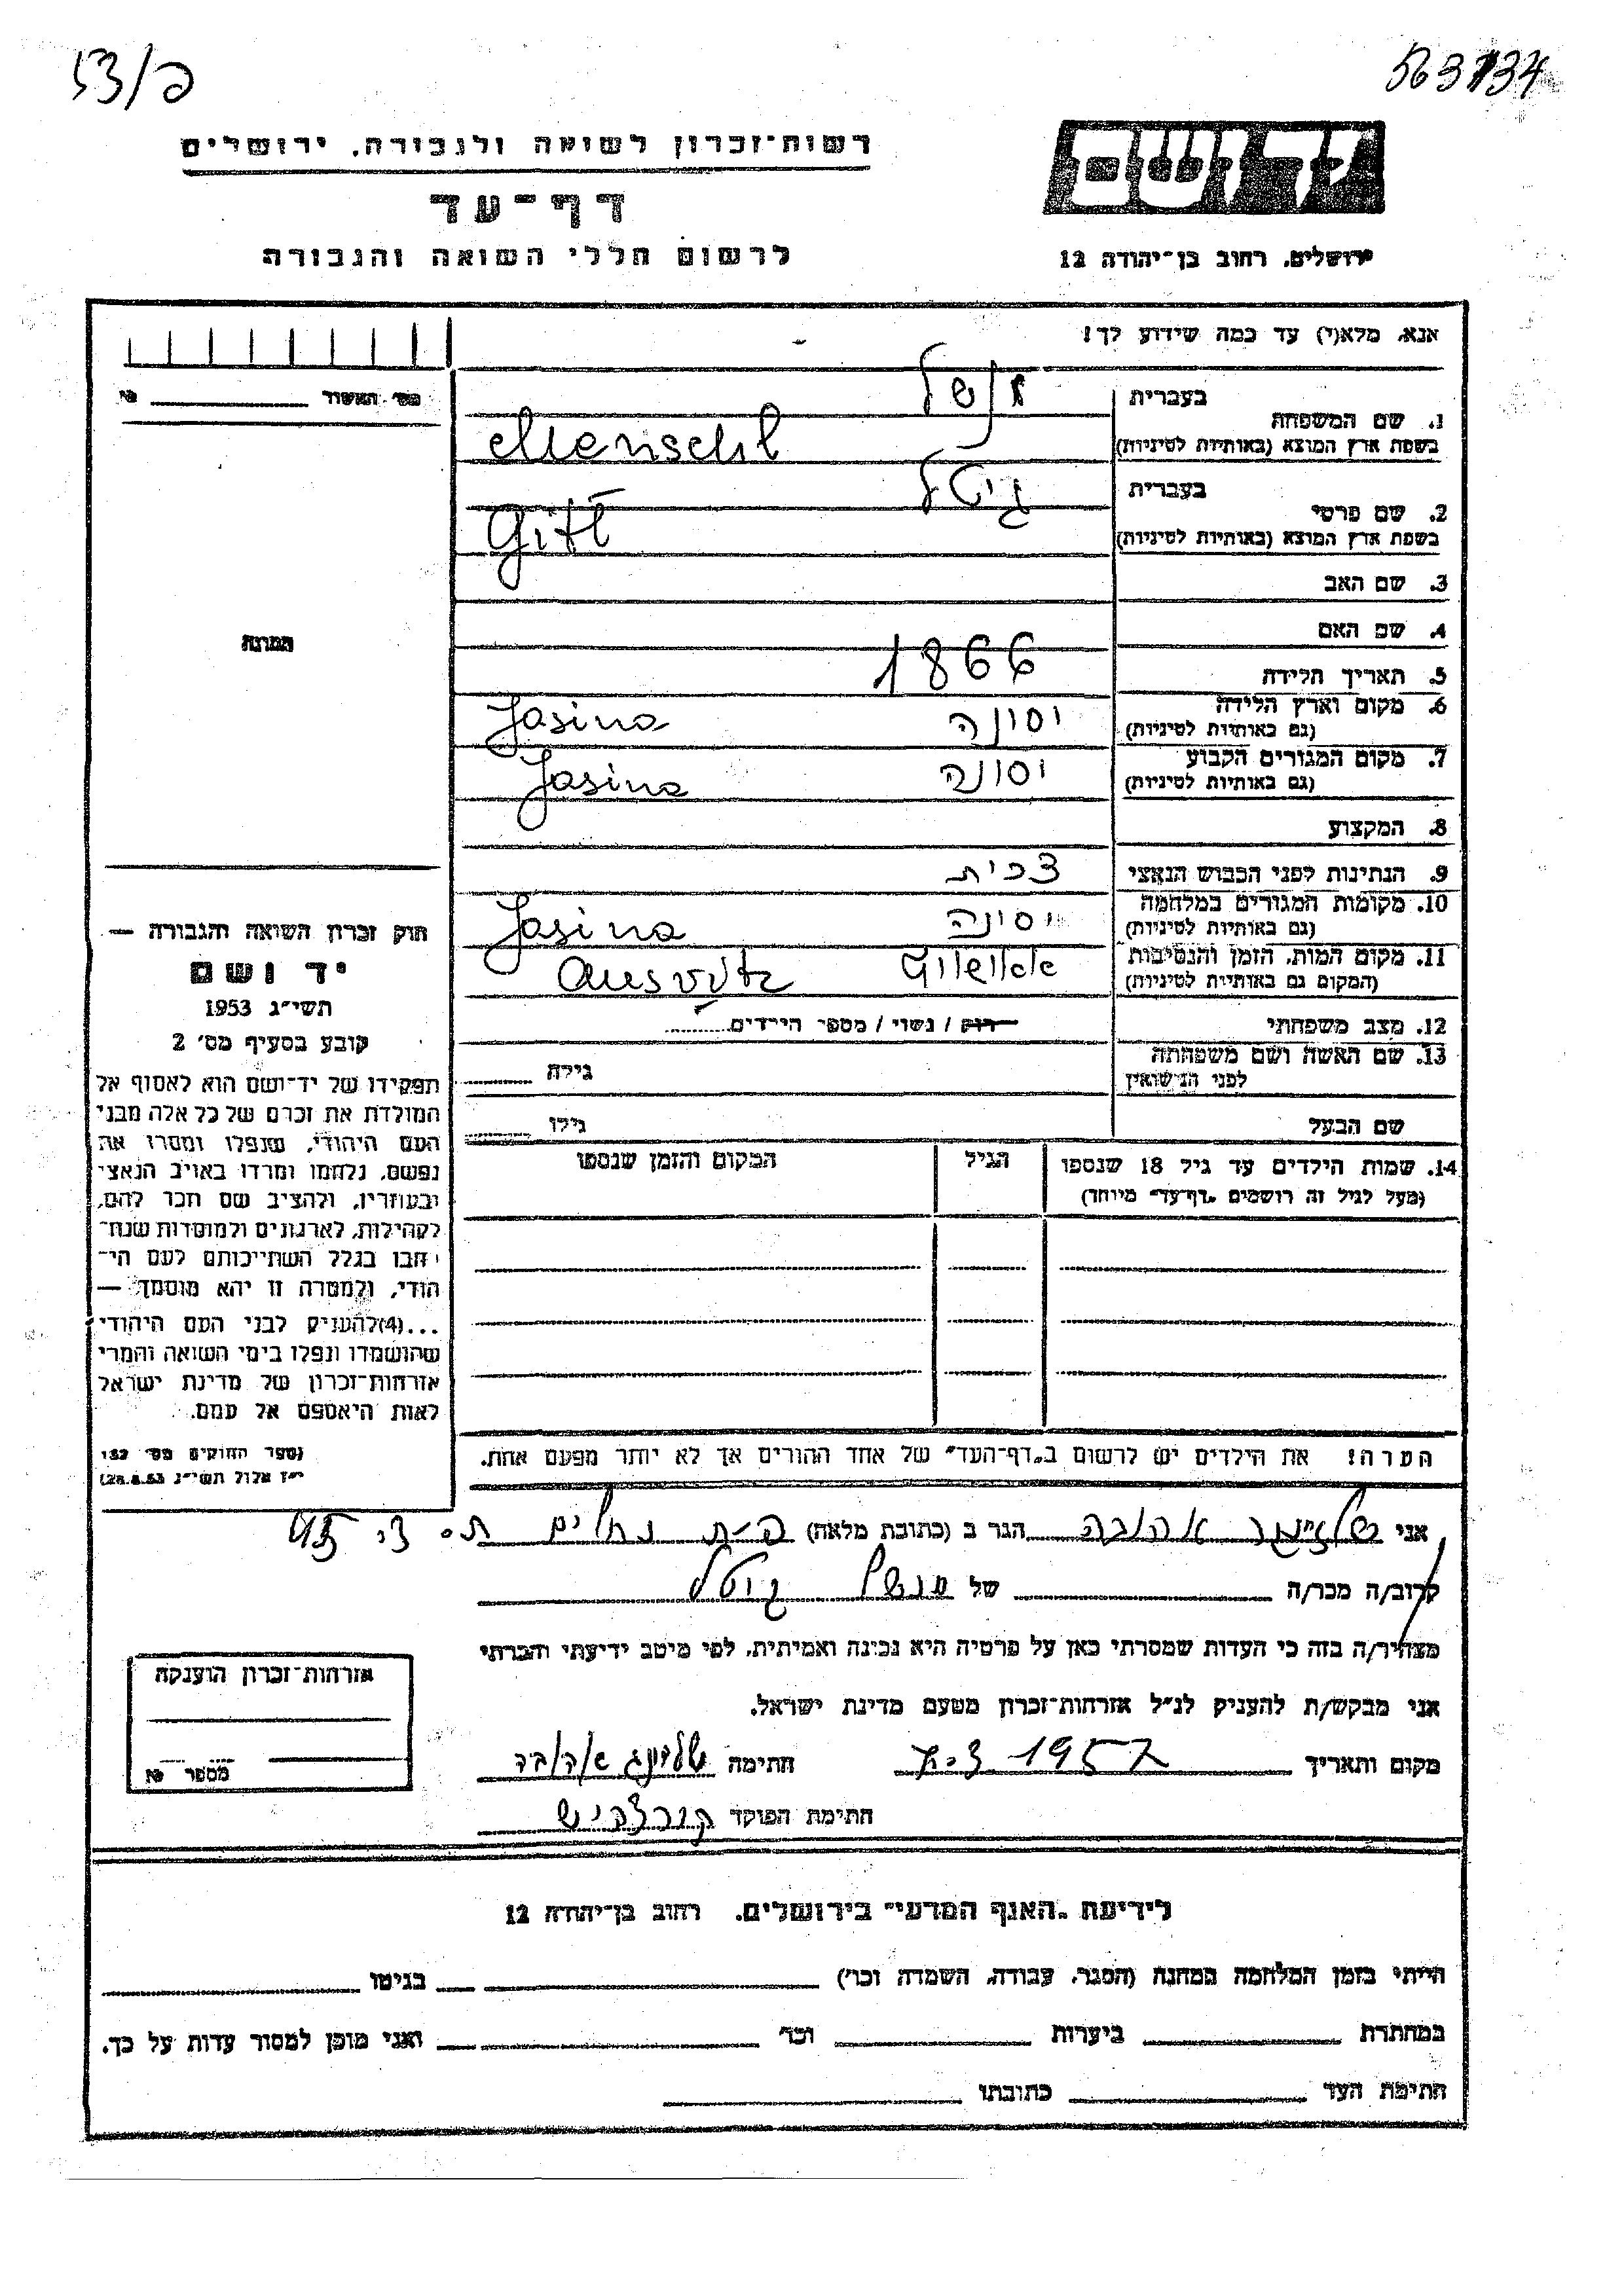 53/פ
563734
רשות־זכרון לשואה ולגבורה, ירושלים
יד ושם
דף־עד
לרשום חללי השואה והגבורה
ירושלים, רחוב בן־יהודה 12
אנא, מלא(י) עד כמה שידוע לך!
מס׳ האשור
בעברית
1. שם המשפחה
בשפת ארץ המוצא (באותיות לטיניות) Menschl
בעברית גיטל
2. שם פרטי
בשפת ארץ המוצא (באותיות לטיניות) Gitl
3. שם האב
4. שם האם
תמונה
5. תאריך הלידה 1866
6. מקום וארץ הלידה יסינה Jasina
(גם באותיות לטיניות)
7. מקום המגורים הקבוע יסינה Jasina
(גם באותיות לטיניות)
8. המקצוע
9. הנתינות לפני הכבוש הנאצי צכית
10. מקומות המגורים במלחמה יסינה Jasina
(גם באותיות לטיניות)
11. מקום המות, הזמן והנסיבות Ausvitz
(המקום גם באותיות לטיניות)
12. מצב משפחתי רוק / נשוי / מספר הילדים
13. שם האשה ושם משפחתה גילה
לפני הנישואין
שם הבעל גילו
14. שמות הילדים עד גיל 18 שנספו הגיל המקום והזמן שנספו
(מעל לגיל זה רושמים „דף־עד״ מיוחד)
חוק זכרון השואה והגבורה —
יד ושם
תשי״ג 1953
קובע בסעיף מס׳ 2
תפקידו של יד־ושם הוא לאסוף אל
המולדת את זכרם של כל אלה מבני
העם היהודי, שנפלו ומסרו את
נפשם, נלחמו ומרדו באויב הנאצי
ובעוזריו, ולהציב שם וזכר להם,
לקהילות, לארגונים ולמוסדות שנח־
רבו בגלל השתייכותם לעם הי־
הודי, ולמטרה זו יהא מוסמך —
...(4)להעניק לבני העם היהודי
שהושמדו ונפלו בימי השואה והמרי
אזרחות־זכרון של מדינת ישראל
לאות היאספם אל עמם.
(ספר החוקים מס׳ 132
י״ז אלול תשי״ג 28.8.53)
הערה! את הילדים יש לרשום ב„דף־העד״ של אחד ההורים אך לא יותר מפעם אחת.
אני אהובה הגר ב (כתובת מלאה) ת.ד.
קרוב/ה מכר/ה של מנשל גיטל
מצהיר/ה בזה כי העדות שמסרתי כאן על פרטיה היא נכונה ואמיתית, לפי מיטב ידיעתי והכרתי
אני מבקש/ת להעניק לנ״ל אזרחות־זכרון מטעם מדינת ישראל.
מקום ותאריך 1957 חתימה אהובה
חתימת הפוקד
אזרחות־זכרון הוענקה
מספר
לידיעת „האגף המדעי״ בירושלים, רחוב בן־יהודה 12
הייתי בזמן המלחמה במחנה (הסגר, עבודה, השמדה וכו׳) בגיטו
במחתרת ביערות וכו׳ ואני מוכן למסור עדות על כך.
חתימת העד כתובתו